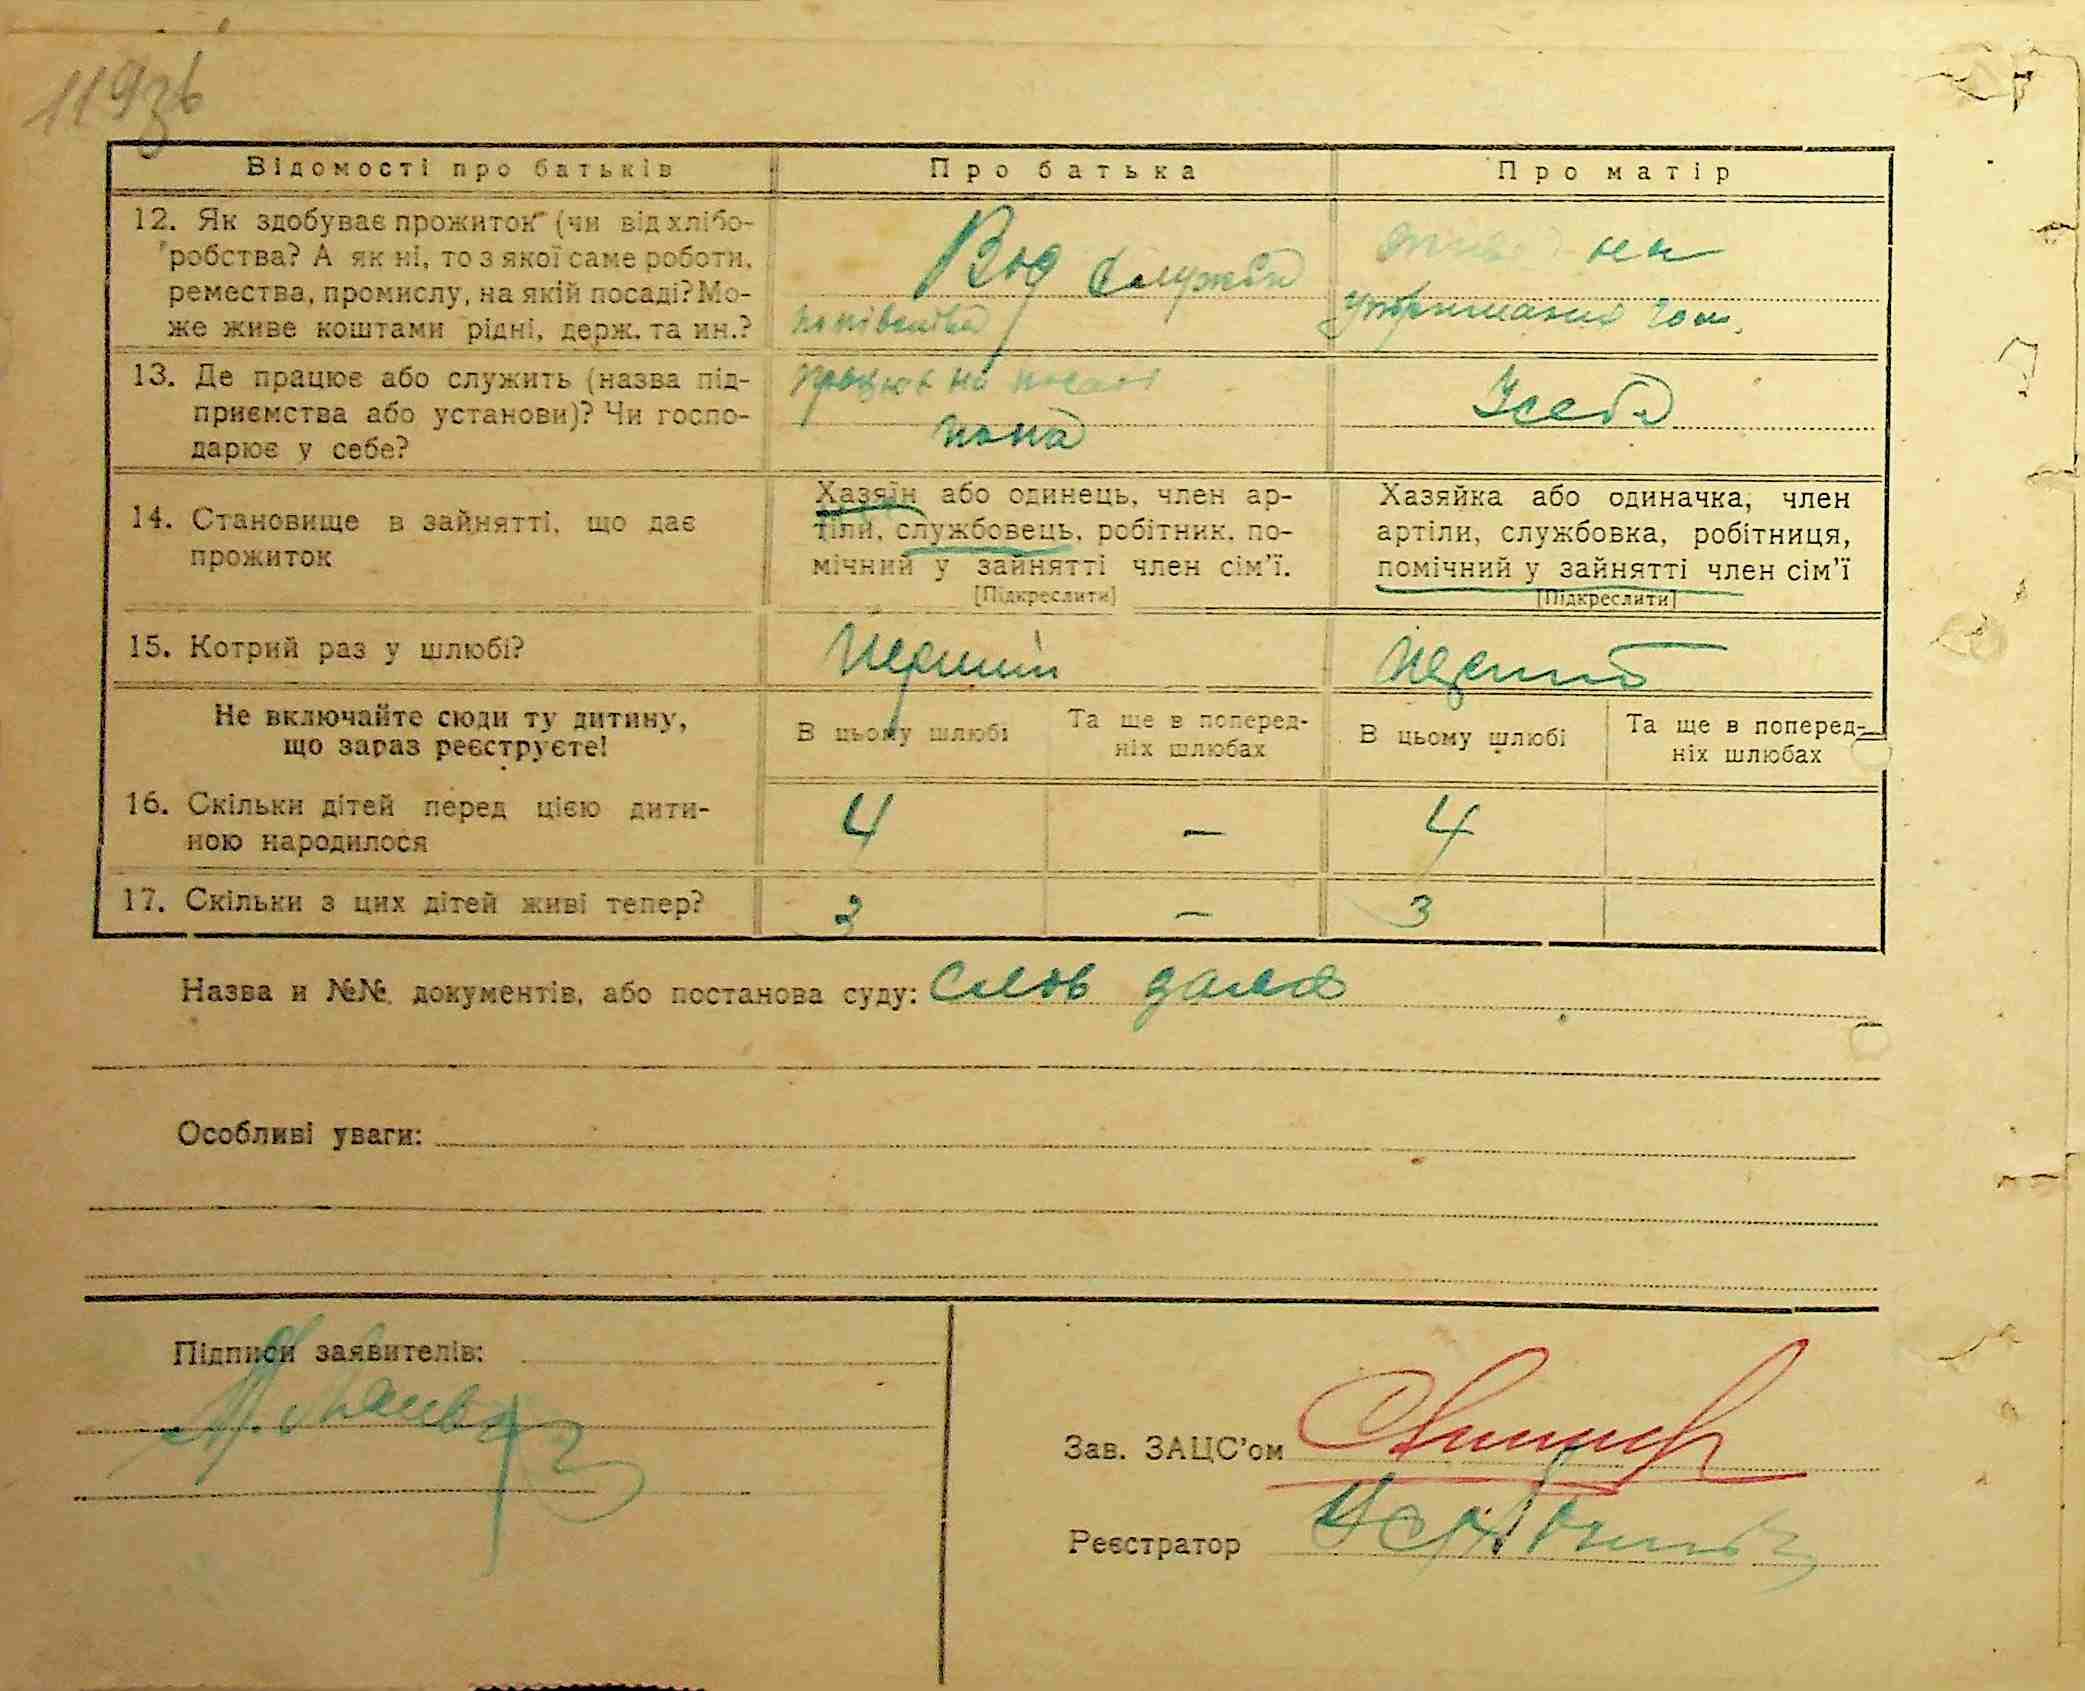 119зв
Відомості про батьків
Про батька
Про матір
12. Як здобуває прожиток (чи від хлібо-
робства? А як ні, то з якої саме роботи,
ремества, промислу, на якій посаді? Мо-
же живе коштами рідні, держ. та ин.?
Від служби
на
утриманні
13. Де працює або служить (назва під-
приємства або установи)? Чи госпо-
дарює у себе?
працює на посаді
попа
У себе
14. Становище в зайнятті, що дає
прожиток
Хазяїн або одинець, член ар-
тіли, службовець, робітник, по-
мічний у зайнятті член сім'ї.
[Підкреслити]
Хазяйка або одиначка, член
артіли, службовка, робітниця,
помічний у зайнятті член сім'ї
[Підкреслити]
15. Котрий раз у шлюбі?
перший
перший
Не включайте сюди ту дитину,
що зараз реєструєте!
В цьому шлюбі
Та ще в поперед-
ніх шлюбах
В цьому шлюбі
Та ще в поперед-
ніх шлюбах
16. Скільки дітей перед цією дити-
ною народилося
4
—
4
17. Скільки з цих дітей живі тепер?
3
—
3
Назва и №№ документів, або постанова суду:
Особливі уваги:
Підписи заявителів:
Зав. ЗАЦС'ом
Реєстратор